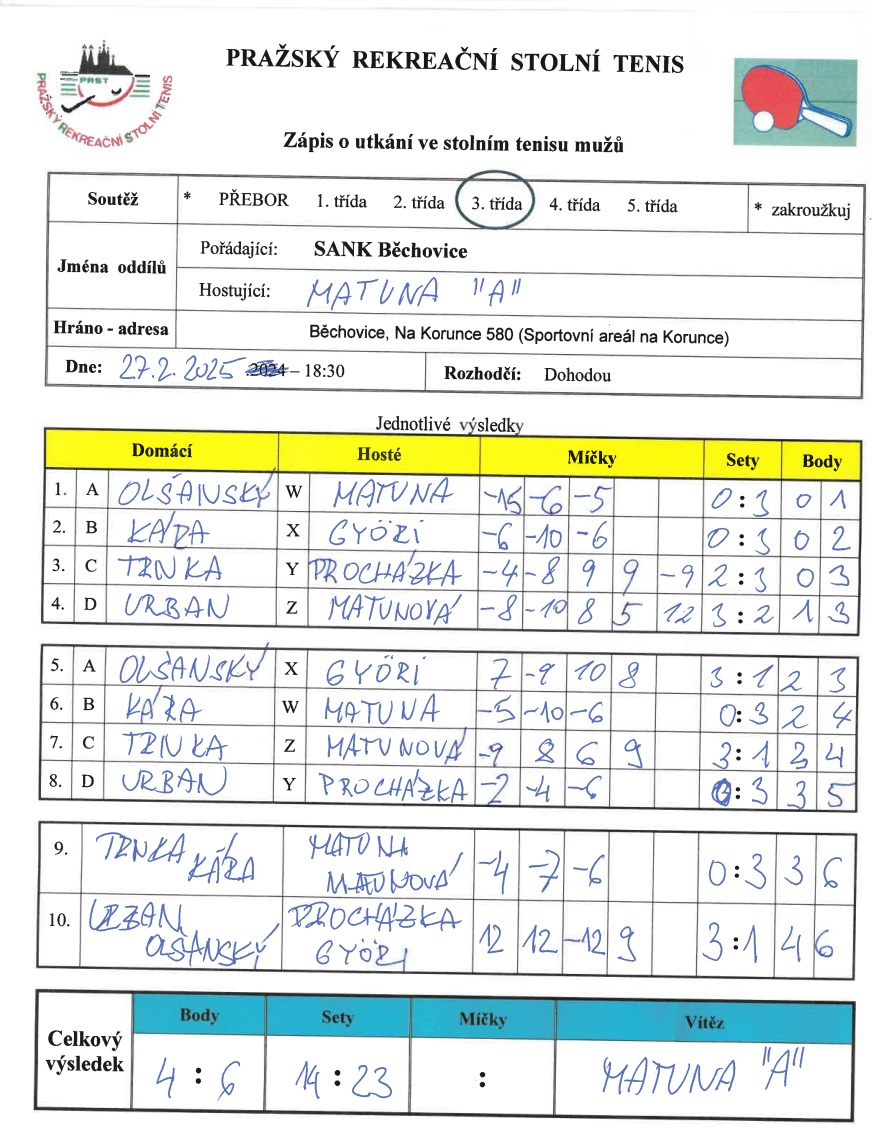 PRAŽSKÝ REKREAČNÍ STOLNÍ TENIS
PRST
PRAŽSKÝ REKREAČNÍ STOLNÍ TENIS
Zápis o utkání ve stolním tenisu mužů
Soutěž * PŘEBOR 1. třída 2. třída 3. třída 4. třída 5. třída * zakroužkuj
Jména oddílů
Pořádající: SANK Běchovice
Hostující: MATUNA "A"
Hráno - adresa Běchovice, Na Korunce 580 (Sportovní areál na Korunce)
Dne: 27.2.2025 2024 – 18:30 Rozhodčí: Dohodou
Jednotlivé výsledky
Domácí Hosté Míčky Sety Body
1. A OLŠANSKÝ W MATUNA -15 -6 -5 0:3 0 1
2. B KÁRA X GYÖRI -6 -10 -6 0:3 0 2
3. C TRNKA Y PROCHÁZKA -4 -8 9 9 -9 2:3 0 3
4. D URBAN Z MATUNOVÁ -8 -10 8 5 12 3:2 1 3
5. A OLŠANSKÝ X GYÖRI 7 -9 10 8 3:1 2 3
6. B KÁRA W MATUNA -5 -10 -6 0:3 2 4
7. C TRNKA Z MATUNOVÁ -9 8 6 9 3:1 3 4
8. D URBAN Y PROCHÁZKA -2 -4 -6 0:3 3 5
9. TRNKA KÁRA MATUNA MAUNOVÁ -4 -7 -6 0:3 3 6
10. URBAN OLŠANSKÝ PROCHÁZKA GYÖRI 12 12 -12 9 3:1 4 6
Celkový výsledek
Body Sety Míčky Vítěz
4:6 14:23 : MATUNA "A"